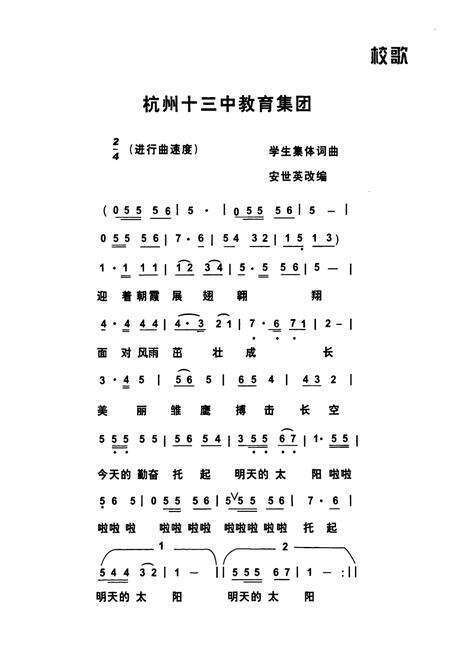 校歌
杭州十三中教育集团
2/4 (进行曲速度) 学生集体词曲
安世英改编
(0 5 5 5 6 | 5 · | 0 5 5 5 6 | 5 — |
0 5 5 5 6 | 7 · 6 | 5 4 3 2 | 1 5 1 3)
1 · 1 1 1 | 1 2 3 4 | 5 · 5 5 6 | 5 — |
迎 着 朝霞 展 翅 翱 翔
4 · 4 4 4 | 4 · 3 2 1 | 7 · 6 7 1 | 2 — |
面 对 风雨 茁 壮 成 长
3 · 4 5 | 5 6 5 | 6 5 4 | 4 3 2 |
美 丽 雏 鹰 搏 击 长 空
5 5 5 5 5 | 5 6 5 4 | 3 5 5 6 7 | 1 · 5 5 |
今天的 勤奋 托 起 明天的 太 阳 啦啦
5 6 5 | 0 5 5 5 6 | 5 V 5 5 5 6 | 7 · 6 |
啦啦 啦 啦啦 啦啦 啦啦啦 啦啦 托 起
1 2
5 4 4 3 2 | 1 — || 5 5 5 6 7 | 1 — :||
明天的 太 阳 明天的 太 阳